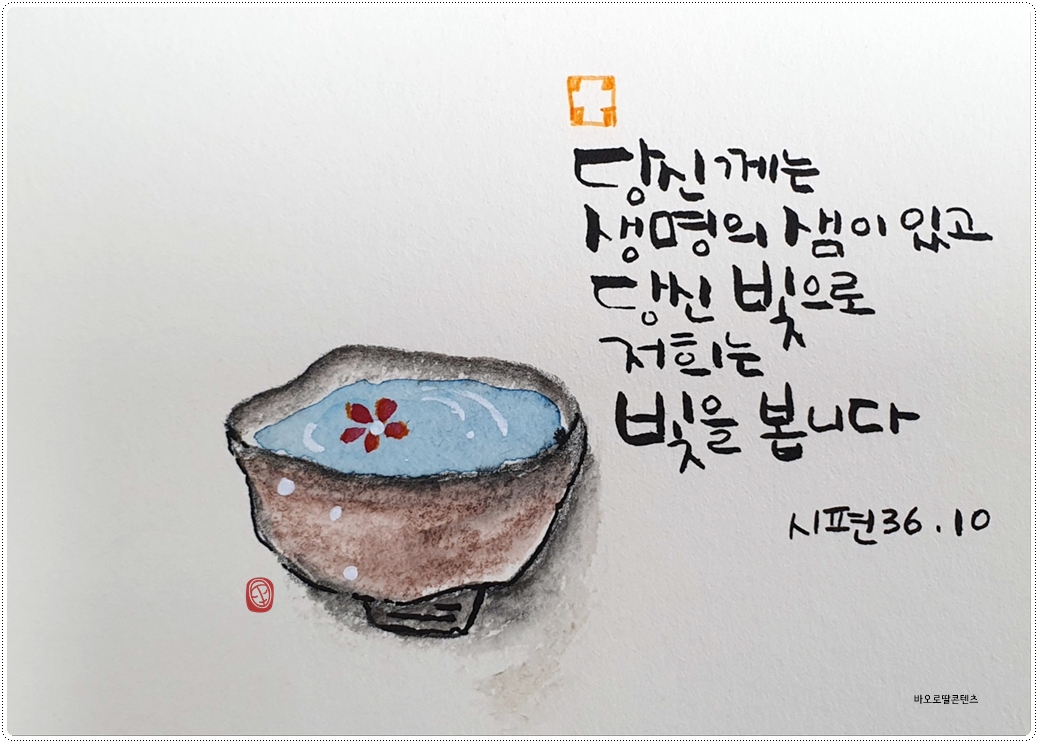 당신께는
생명의 샘이 있고
당신 빛으로
저희는
빛을 봅니다
시편36.10
바오로딸콘텐츠